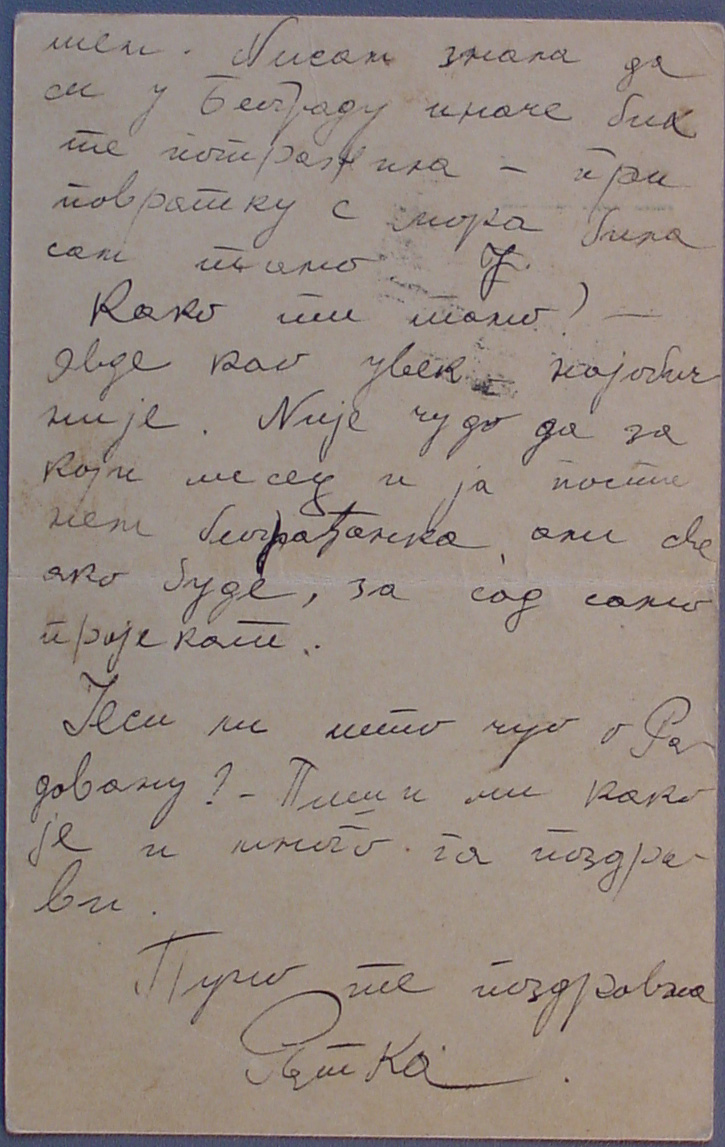 шем. Нисам знала да
си у Београду иначе бих
те потражила – при
повратку с мора била
сам тамо
Како ти тамо? –
Овде као увек најобич
није. Није чудо да за
који месец и ја поста
нем београђанка, али све
ако буде, за сад само
пројекат.
Јеси ли што чуо о Ра
довану? – Пиши ми како
је и много га поздра
ви.
Пуно те поздравља